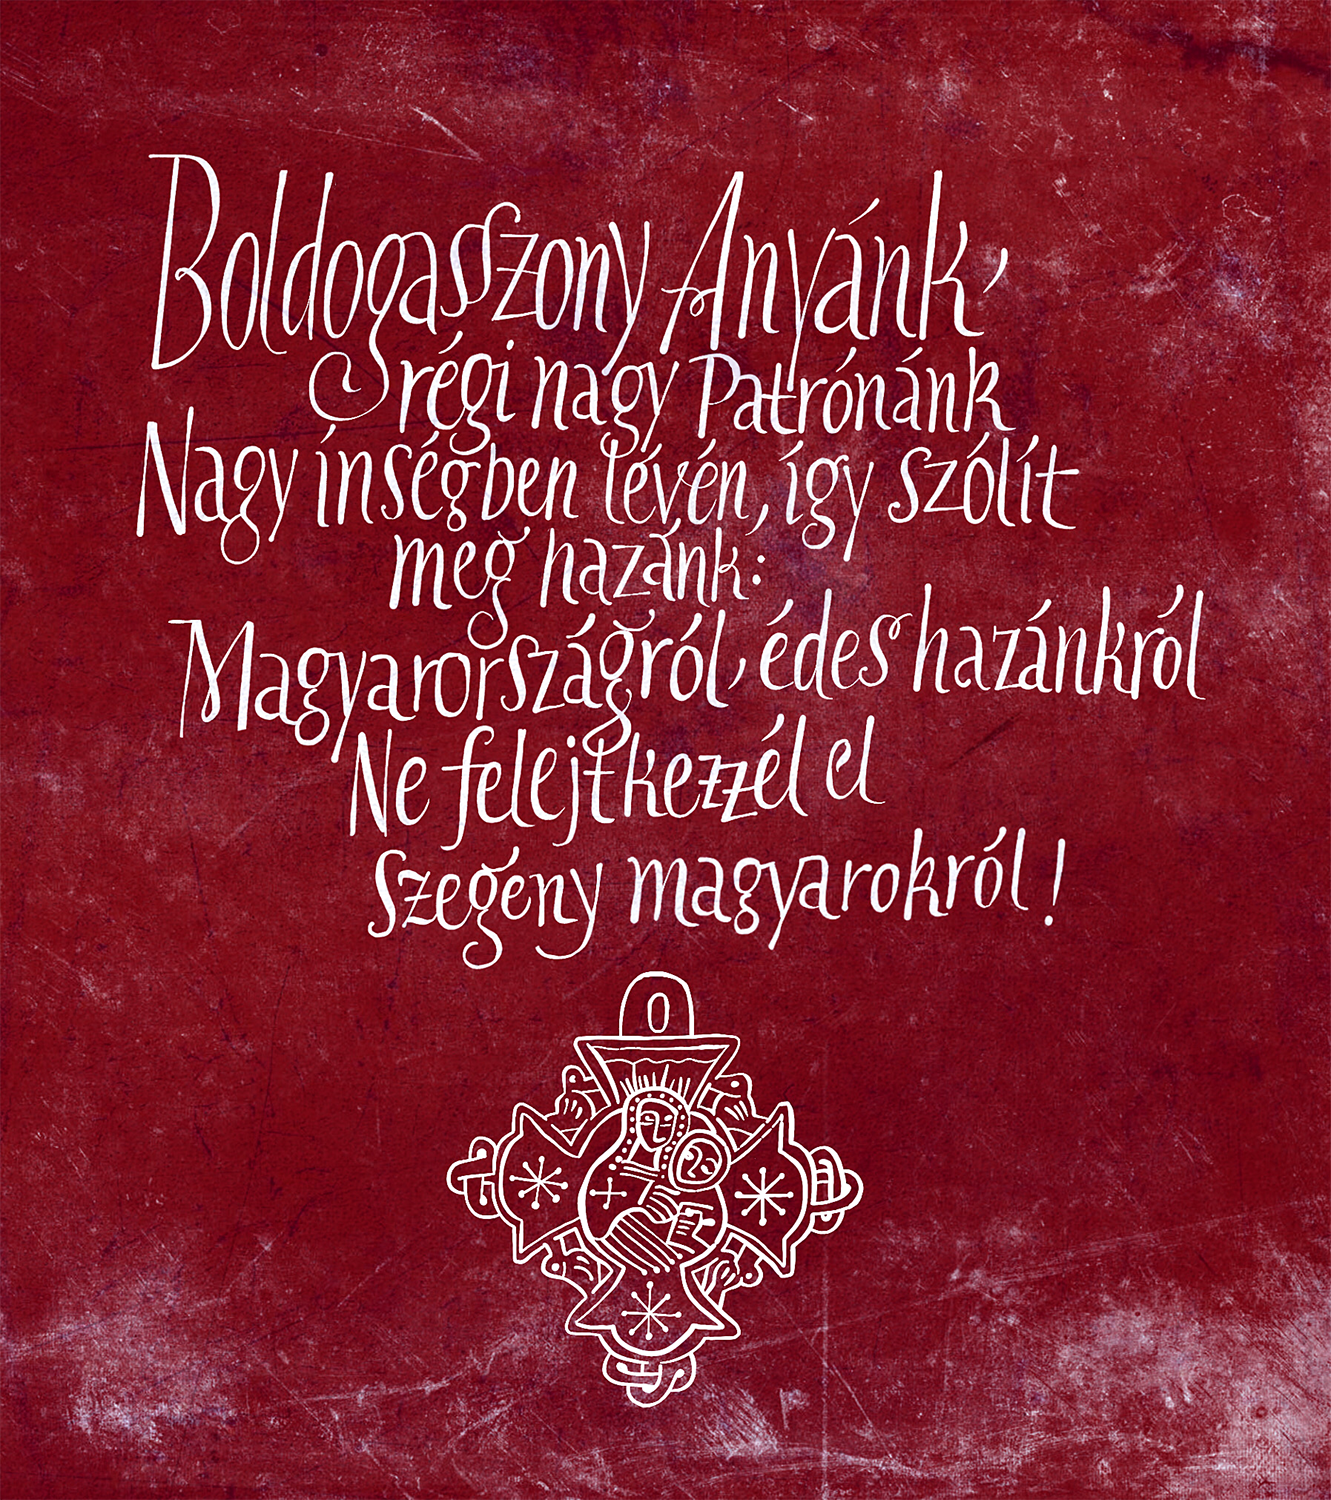 Boldogaszony Anyánk,
régi nagy Patrónánk
Nagy ínségben lévén, így szólít
meg hazánk:
Magyarországról, édes hazánkról
Ne felejtkezzél el
szegény magyarokról!